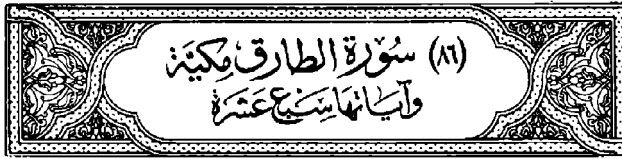 (٨٦) سُورَة الطارق مكيّة
وآياتها سَبع عَشرَة